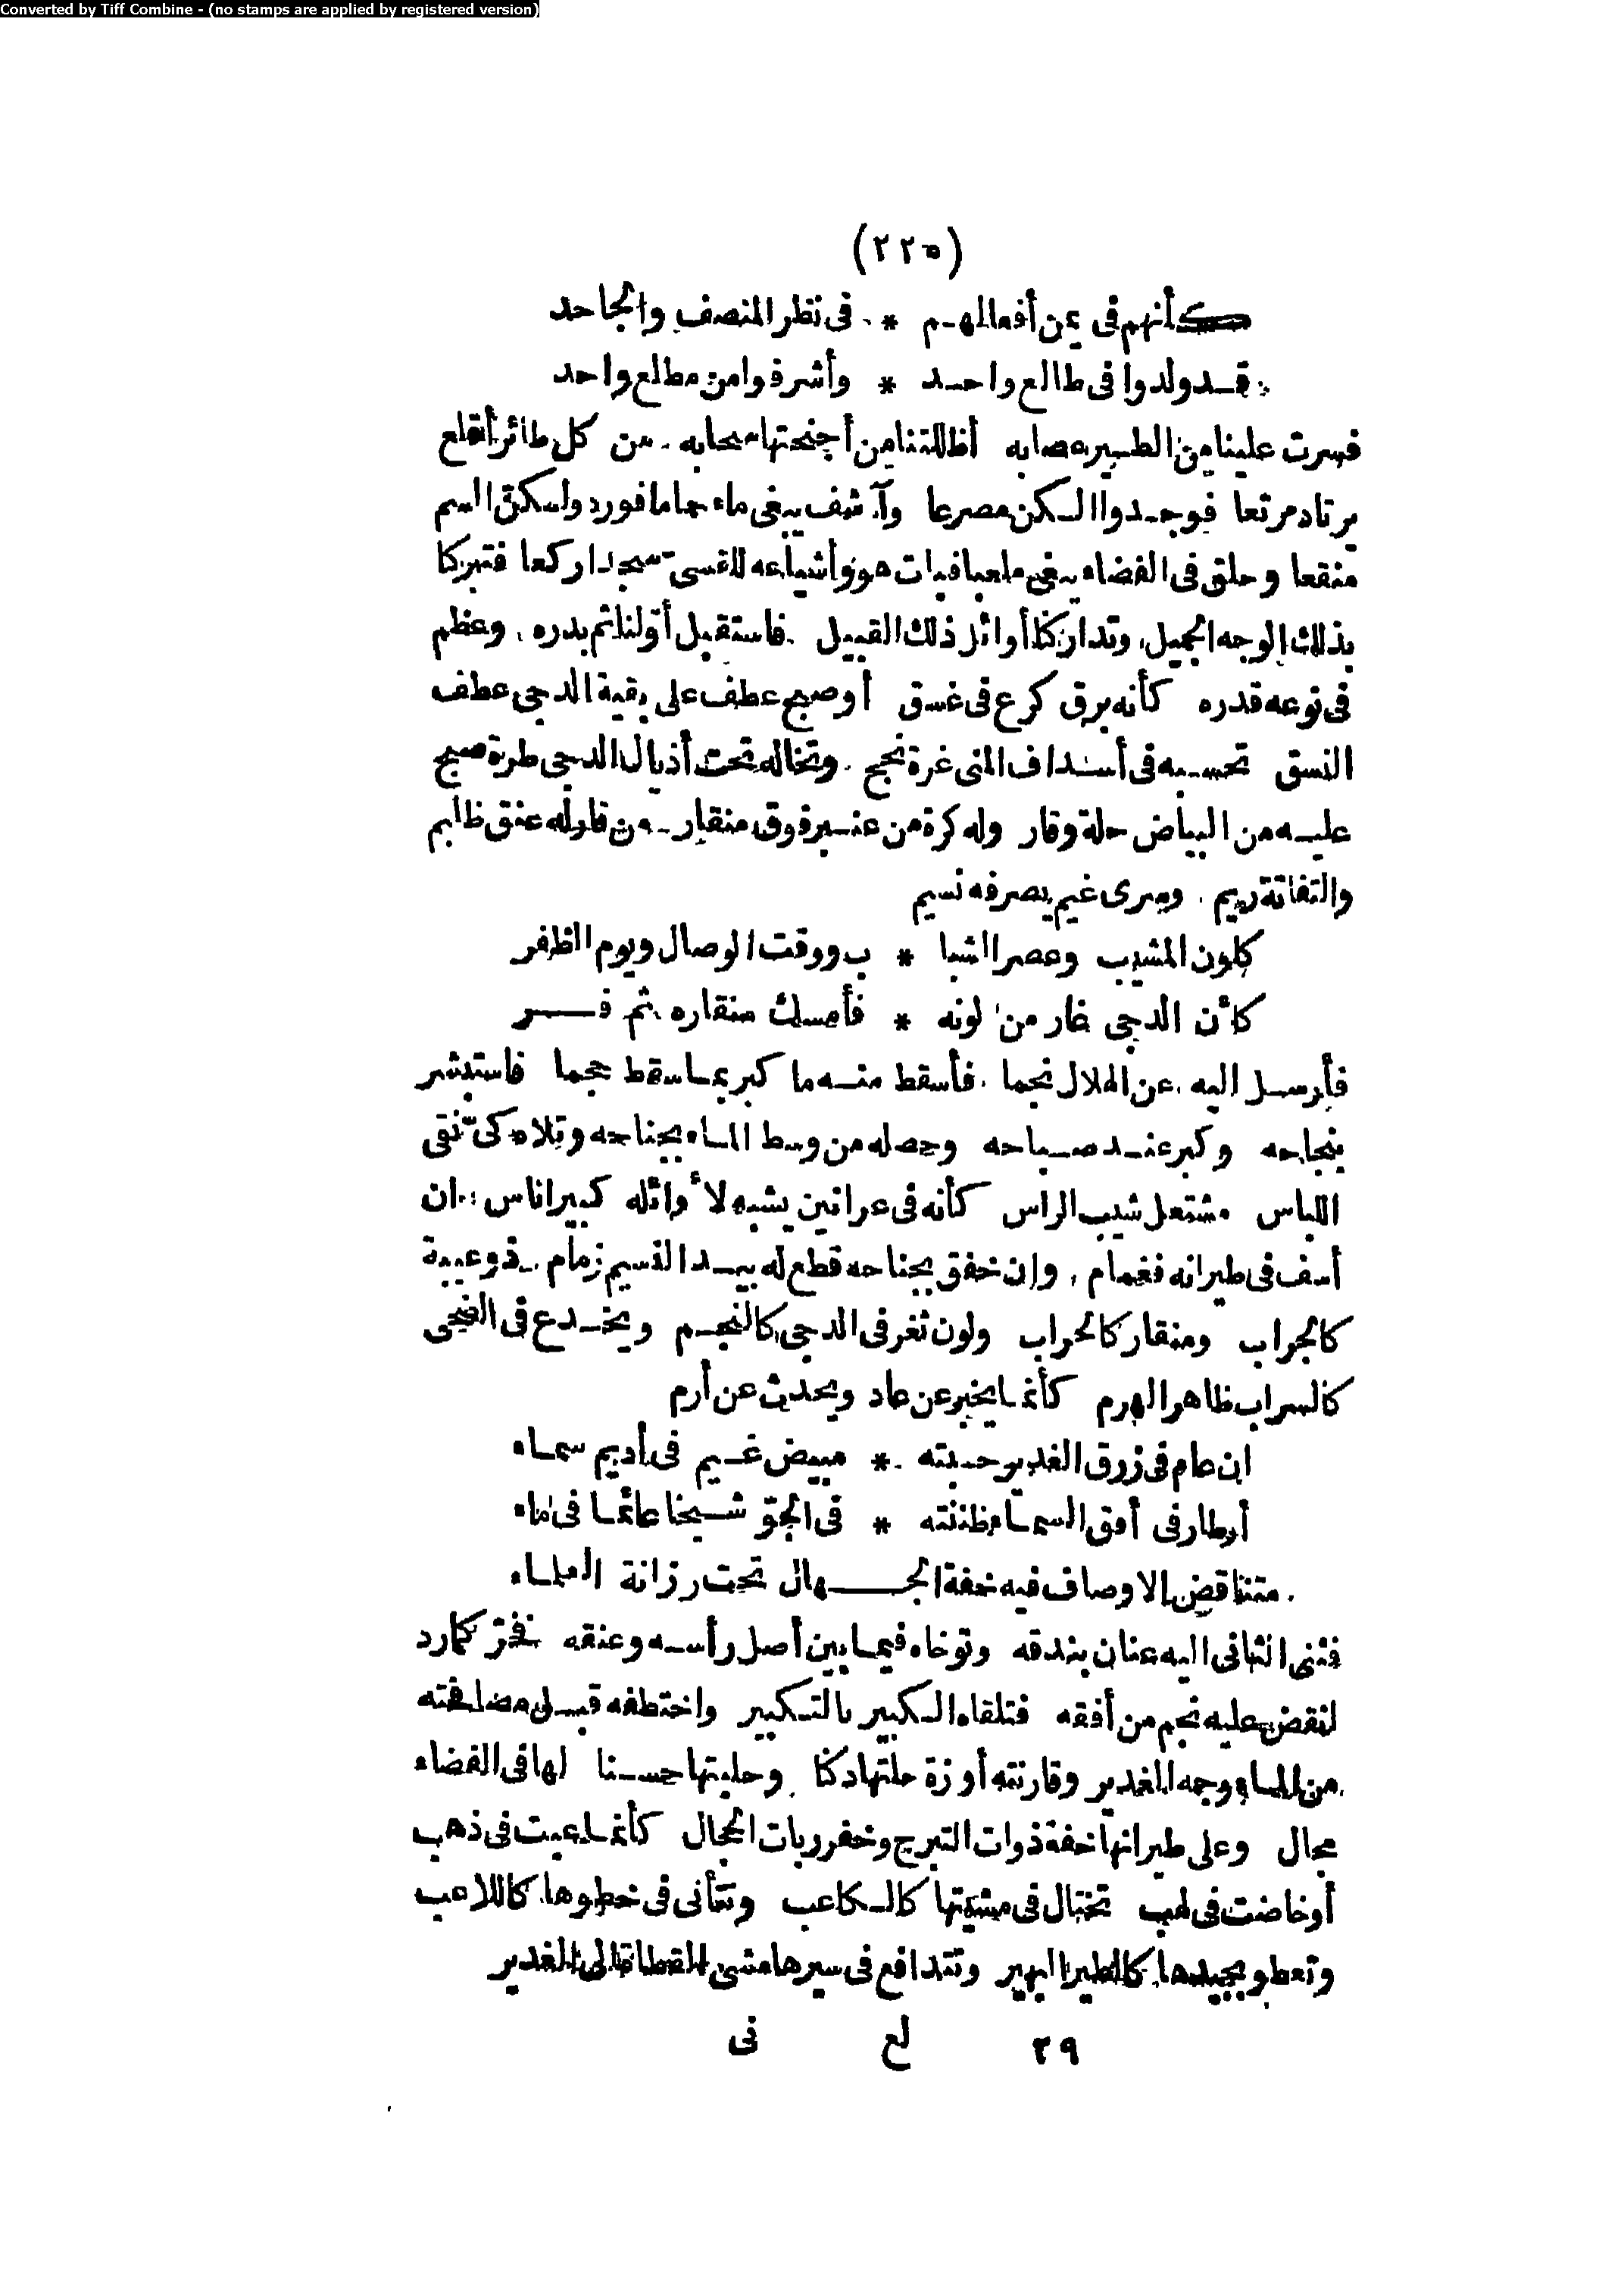 Converted by Tiff Combine - (no stamps are applied by registered version)
(٢٢٥)
كأنهم في يمن أفعالهم * في نظر المنصف والجاحد
قد ولدوا في طالع واحد * وأشرفوا من مطلع واحد
فمرت علينا من الطير عصابه أظلتنا من أجنحتها سحابه من كل طائر أقلع
يرتاد مرتعا فوجد والكن مصرعا وآسف يبغي ماء جماما فورد ولكن السم
منقعا وحلق في الفضاء يبغي ملعبا فبات هو وأشياعه للقسي سجدا ركعا فتبركا
بذلك الوجه الجميل وتداركنا أوائل ذلك القبيل فاستقبل أولنا تم بدره وعظم
في نوعه قدره كأنه برق كرع في غسق أو صبح عطف على بقية الدجى عطف
النسق تحسبه في أسداف المنى غرة نجح وتخاله تحت أذيال الدجى طرة صبح
عليه من البياض حلة وقار وله كرة من عنبر فوق منقار من قار له عنق ظليم
والتفاتة ريم وسرى غيم يصرفه نسيم
كلون المشيب وعصر الشبا * ب ووقت الوصال ويوم الظفر
كأن الدجى غار من لونه * فأمسك منقاره ثم فر
فأرسل اليه عن الهلال نجما فأسقط منه ما كبر بما سقط حجما فاستبشر
بنجاحه وكبر عند صياحه وحصله من وسط الماء بجناحه وتلاه كي نقي
اللباس مشتعل شيب الراس كأنه في عرانين يشبه لأوائله كبير اناس ان
أسف في طيرانه فغمام وان خفق بجناحه قطع له بيد النسيم زمام ذو عيبة
كالجراب ومنقار كالحراب ولون تغر في الدجى كالنجم ويخدع في الضحى
كالسراب ظاهر الهرم كأنما يخبر عن عاد ويحدث عن أرم
ان عام في زرق الغدير حسبته * مبيض غيم في أديم سماء
أو طار في أفق السماء ظننته * في الجو شيخا عائما في ماء
متناقض الاوصاف فيه خفة الجهال تحت رزانة العلماء
فثنى الثاني اليه عنان بندقه وتوخاه فيما بين أصل رأسه وعنقه فخر كمارد
انقض عليه نجم من أفقه فتلقاه الكبير بالتكبير واختطفه قبل مصافحته
من الماء وجه الغدير وقارنته أوزة حلتها دكنا وحليتها حسنا لها في الفضاء
مجال وعلى طيرانها خفة ذوات التبرج وخفر ربات الحجال كأنما عبت في ذهب
أو خاضت في لهب تختال في مشيتها كالكاعب وتتأنى في خطوها كاللاعب
وتعطو بجيدها كالطير البهير وتتدافع في سيرها مشى القطاة الى الغدير
٢٩ لع نى